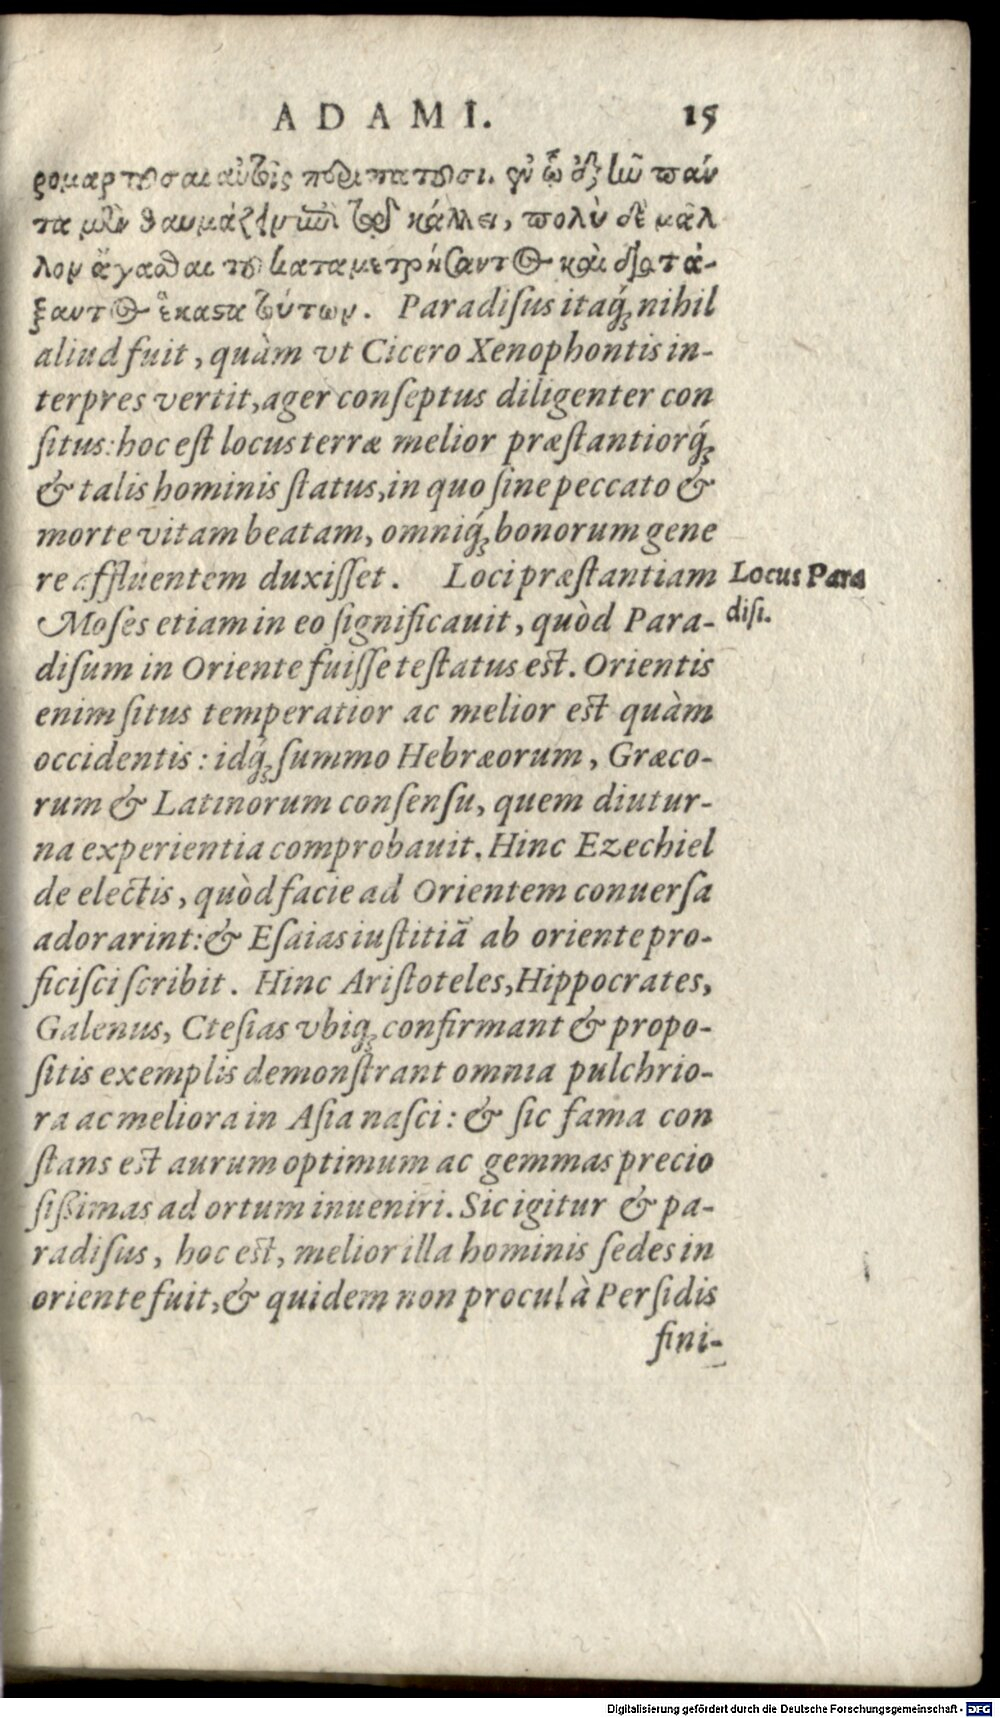 ADAMI. 15
ρομαρτοῦσαι αὐτοῖς περιπατοῦσι. ἐν ᾧ δὴ ἦν πάν
τα μὲν θαυμάζειν ἐπὶ τῷ κάλλει, πολὺ δὲ μᾶλ
λον ἄγασθαι τοῦ καταμετρήσαντος καὶ διατά-
ξαντος ἕκαστα τούτων. Paradiſus itaq́; nihil
aliud fuit, quàm vt Cicero Xenophontis in-
terpres vertit, ager conſeptus diligenter con
ſitus: hoc eſt locus terræ melior præſtantiorq́;
& talis hominis ſtatus, in quo ſine peccato &
morte vitam beatam, omniq́; bonorum gene
re affluentem duxiſſet. Loci præſtantiam
Locus Para
Moſes etiam in eo ſignificauit, quòd Para-
diſi.
diſum in Oriente fuiſſe teſtatus eſt. Orientis
enim ſitus temperatior ac melior eſt quàm
occidentis: idq́; ſummo Hebræorum, Græco-
rum & Latinorum conſenſu, quem diutur-
na experientia comprobauit. Hinc Ezechiel
de electis, quòd facie ad Orientem conuerſa
adorarint: & Eſaias iuſtitiā ab oriente pro-
ficiſci ſcribit. Hinc Ariſtoteles, Hippocrates,
Galenus, Cteſias vbiq; confirmant & propo-
ſitis exemplis demonſtrant omnia pulchrio-
ra ac meliora in Aſia naſci: & ſic fama con
ſtans eſt aurum optimum ac gemmas precio
ſißimas ad ortum inueniri. Sic igitur & pa-
radiſus, hoc eſt, melior illa hominis ſedes in
oriente fuit, & quidem non procul à Perſidis
fini-
Digitalisierung gefördert durch die Deutsche Forschungsgemeinschaft - DFG